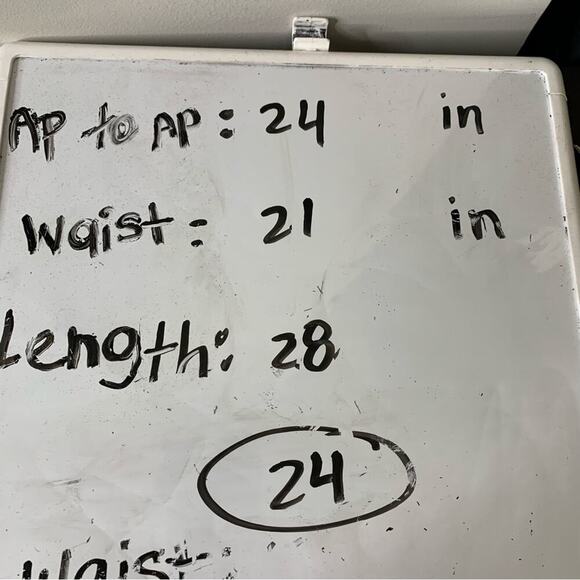 AP to AP: 24 in
Waist: 21 in
Length: 28
24
Waist: